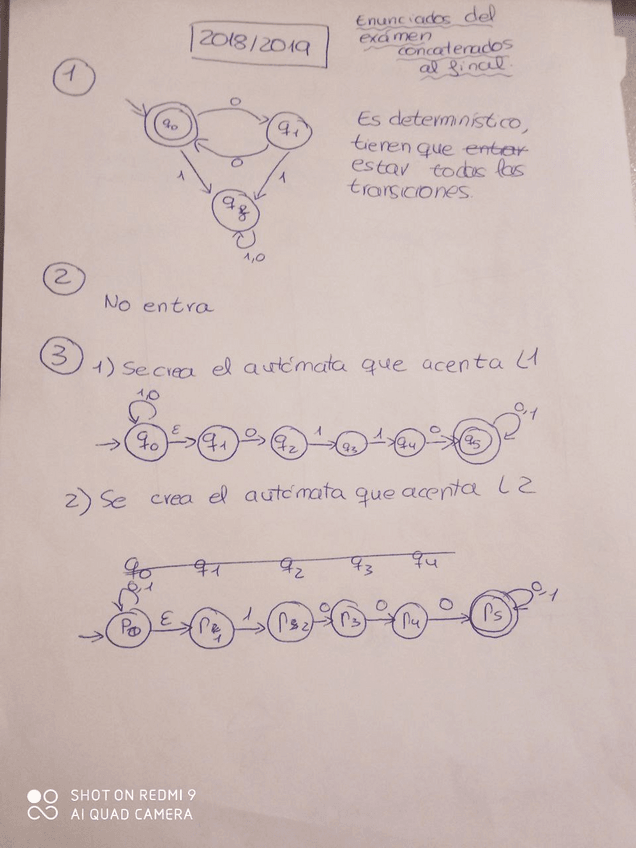 2018/2019
Enunciados del
exámen
concatenados
al final.
1
q0 0 q1
0
1 1
q8
1,0
Es determinístico,
tienen que entar
estar todas las
transiciones.
2
No entra
3 1) Se crea el autómata que acenta L1
1,0
q0 ε q1 0 q2 1 q3 1 q4 0 q5 0,1
2) Se crea el autómata que acenta L2
q0 q1 q2 q3 q4
0,1
p0 ε p1 1 p2 0 p3 0 p4 0 p5 0,1
SHOT ON REDMI 9
AI QUAD CAMERA